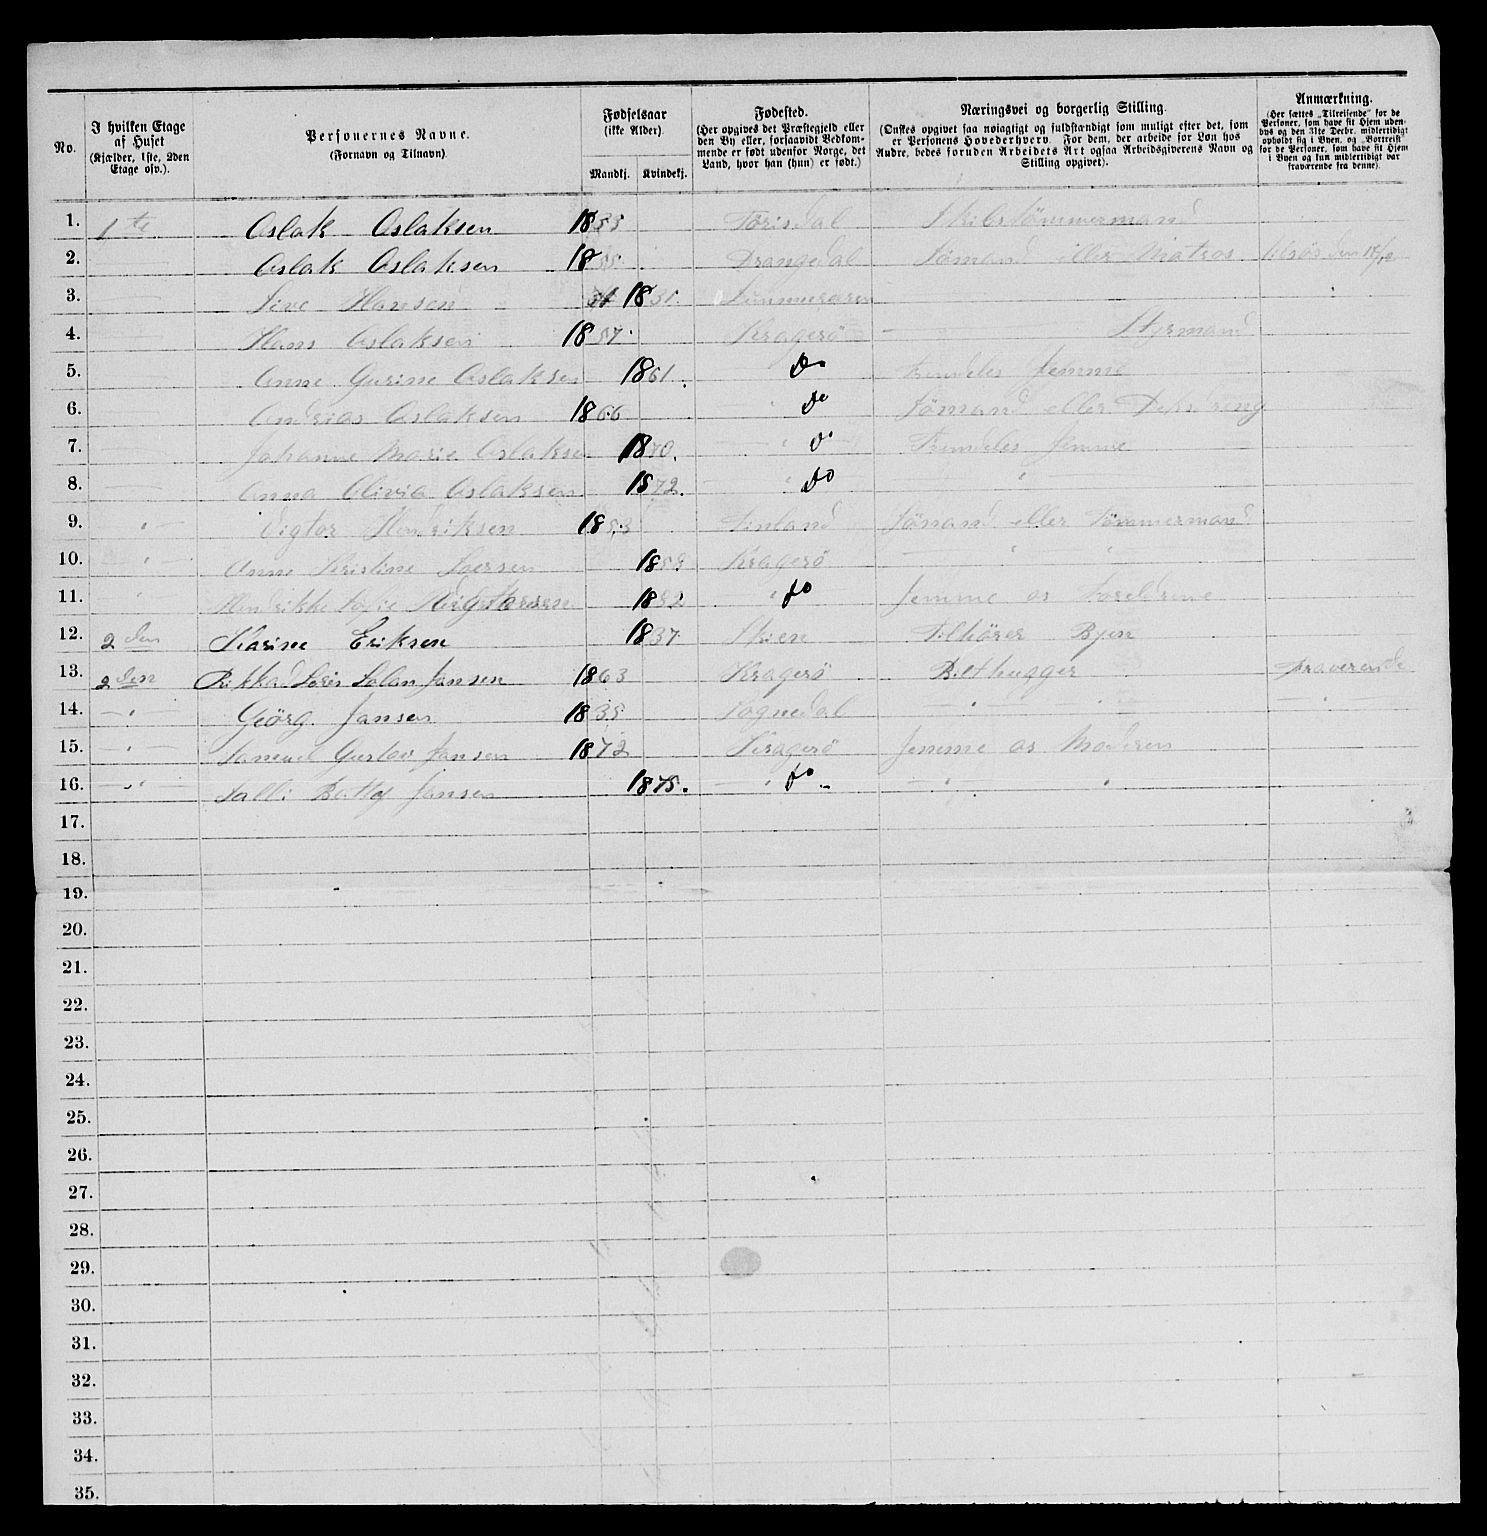 No. | I hvilken Etage af Huset (Kjælder, 1ste, 2den Etage osv.). | Personernes Navne. (Fornavn og Tilnavn). | Fødselsaar (ikke Alder). Mandkj. Kvindekj. | Fødested. (Her opgives det Præstegjeld eller den By eller, forsaavidt Bedkommende er født udenfor Norge, det Land, hvor han (hun) er født.) | Næringsvei og borgerlig Stilling. (Ønskes opgivet saa nøiagtigt og fuldstændigt som muligt efter det, som er Personens Hovederhverv. For dem, der arbeide for Løn hos Andre, bedes foruden Arbeidets Art ogsaa Arbeidsgiverens Navn og Stilling opgivet). | Anmærkning. (Her sættes „Tilreisende" for de Personer, som have sit Hjem udenbys og den 31te Decbr. midlertidigt opholdt sig i Byen, og „Bortreist" for de Personer, som have sit Hjem i Byen og kun midlertidigt var fraværende fra denne).
1. 1 te Aslak Aslaksen 1833 Törisdal Skibstömmermand
2. Aslak Aslaksen 18 Drangedal Sömand eller Matros
3. Sive Hansen 1831. 
4. Hans Aslaksen 1857. Kragerö Styrmand
5. Anne Gurine Aslaksen 1861. Do jemme
6. Andrias Aslaksen 1866 Do Sömand eller
7. Johanne Marie Aslaksen 1870. Do jemme
8. Anna Olivia Aslaksen 1872. Do "
9. " Vigtor Hendriksen 1853 Finland Sömand eller Tömmermand
10. " Anne Kristine Kragerö " "
11. " Hendrikke 1882 " do jemme os Foreldrene
12. 2 den Karine Eriksen 1837. Skien Tilhörer Byen
13. 2 den Jansen 1863 Kragerö Blkhugger
14. " Geörg. Jansen 1835 Sognedal " " "
15. " Samuel Gustav Jansen 1872 Kragerö jemme os Moderen
16. " Jansen 1875. " do " "
17.
18.
19.
20.
21.
22.
23.
24.
25.
26.
27.
28.
29.
30.
31.
32.
33.
34.
35.